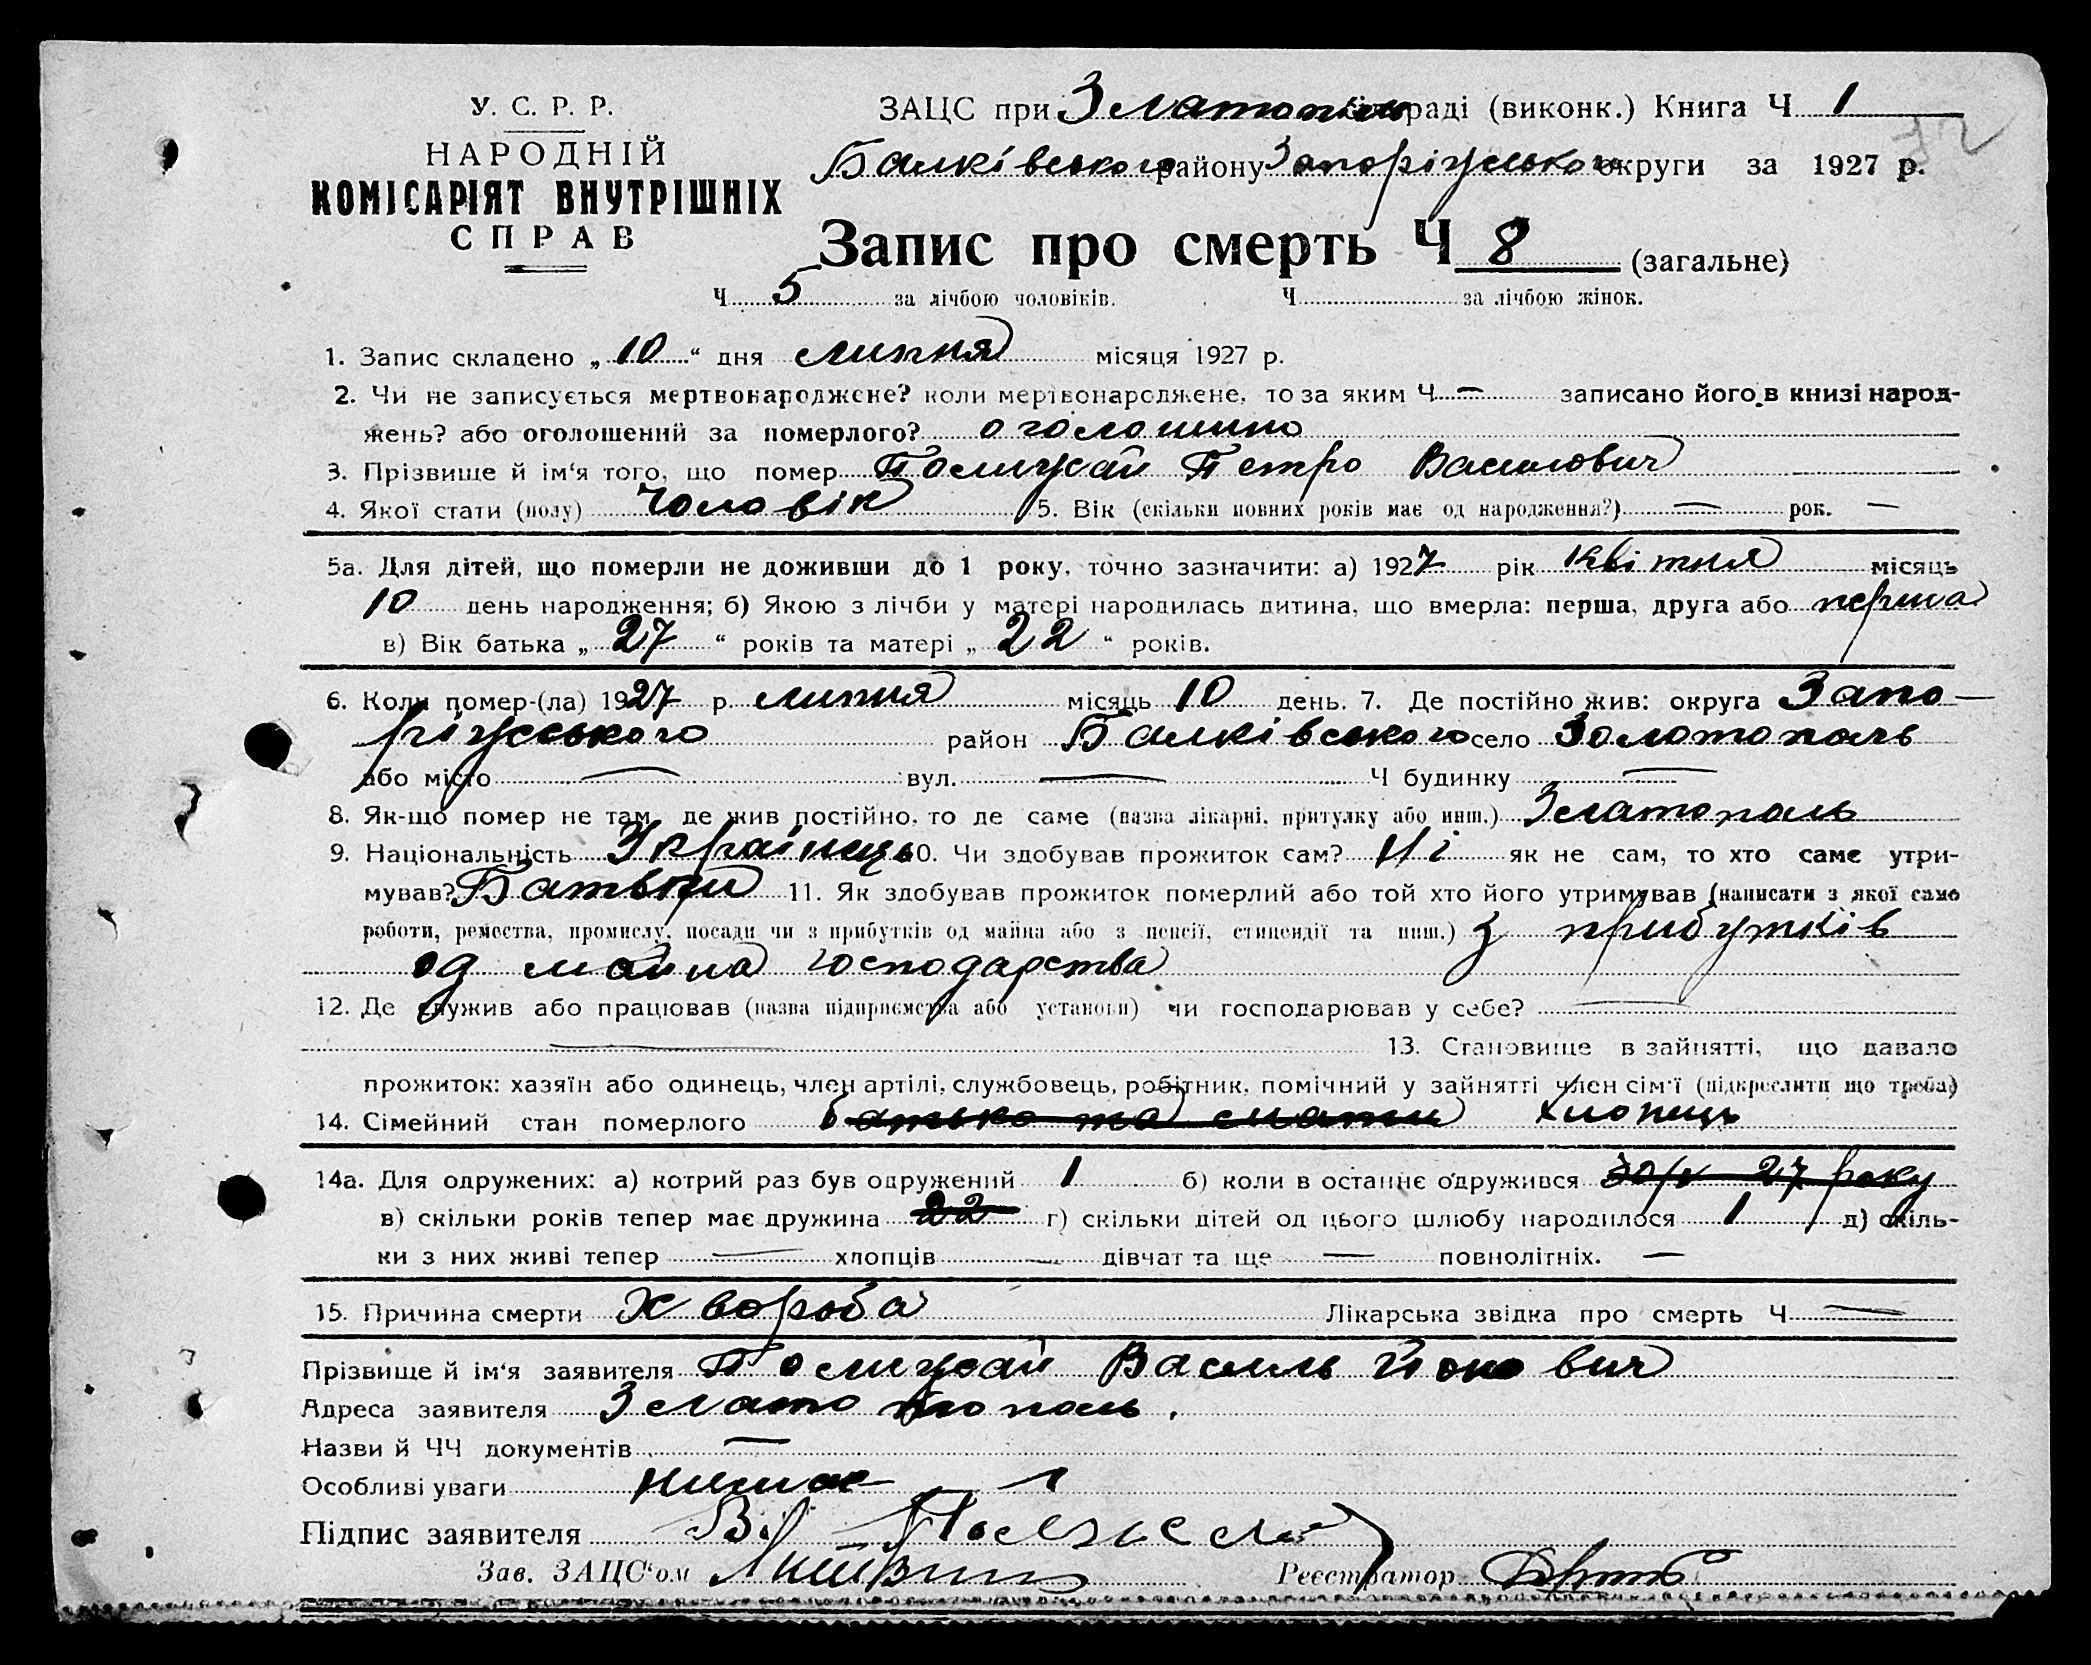 У. С. Р. Р.
НАРОДНІЙ
КОМІСАРІЯТ ВНУТРІШНІХ
СПРАВ
ЗАЦС при Златопіль раді (виконк.) Книга Ч 1
72
Балківського району Запоріжського округи за 1927 р.
Запис про смерть Ч 8 (загальне)
Ч 5 за лічбою чоловіків. Ч за лічбою жінок.
1. Запис складено „ 10 “ дня липня місяця 1927 р.
2. Чи не записується мертвонароджене? коли мертвонароджене, то за яким Ч — записано його в книзі народ-
жень? або оголошений за померлого? оголошино
3. Прізвище й ім‘я того, що помер Полижай Петро Васильович
4. Якої стати (полу) Чоловік 5. Вік (скільки повних років має од народження?) — рок. —
5а. Для дітей, що померли не доживши до 1 року, точно зазначити: а) 1927 рік квітня місяць
10 день народження; б) Якою з лічби у матері народилась дитина, що вмерла: перша, друга або перша
в) Вік батька „ 27 “ років та матері „ 22 “ років.
6. Коли помер-(ла) 1927 р. липня місяць 10 день. 7. Де постійно жив: округа Запо-
ріжського район Балківського село Золотополь
або місто — вул. — Ч будинку —
8. Як-що помер не там, де жив постійно, то де саме (назва лікарні, притулку або инш.) Златополь
9. Національність Українець 10. Чи здобував прожиток сам? Ні як не сам, то хто саме утри-
мував? Батьки 11. Як здобував прожиток померлий або той хто його утримував (написати з якої само
роботи, ремества, промислу, посади чи з прибутків од майна або з пенсії, стипендії та инш.) з прибутків
од майна господарства
12. Де служив або працював (назва підприємства або установи) чи господарював у себе? —
— 13. Становище в зайнятті, що давало
прожиток: хазяїн або одинець, член артілі, службовець, робітник, помічний у зайнятті член сім‘ї (підкреслити що треба)
14. Сімейний стан померлого батько та мати хлопець
14а. Для одружених: а) котрий раз був одружений 1 б) коли в останнє одружився 27 року
в) скільки років тепер має дружина 22 г) скільки дітей од цього шлюбу народилося 1 д) скіль-
ки з них живі тепер — хлопців — дівчат та ще — повнолітніх. —
15. Причина смерти Хвороба Лікарська звідка про смерть Ч —
Прізвище й ім‘я заявителя Полижай Василь
Адреса заявителя Злато пополь.
Назви й ЧЧ документів —
Особливі уваги нима
Підпис заявителя В.
Зав. ЗАЦС‘ом Реєстратор